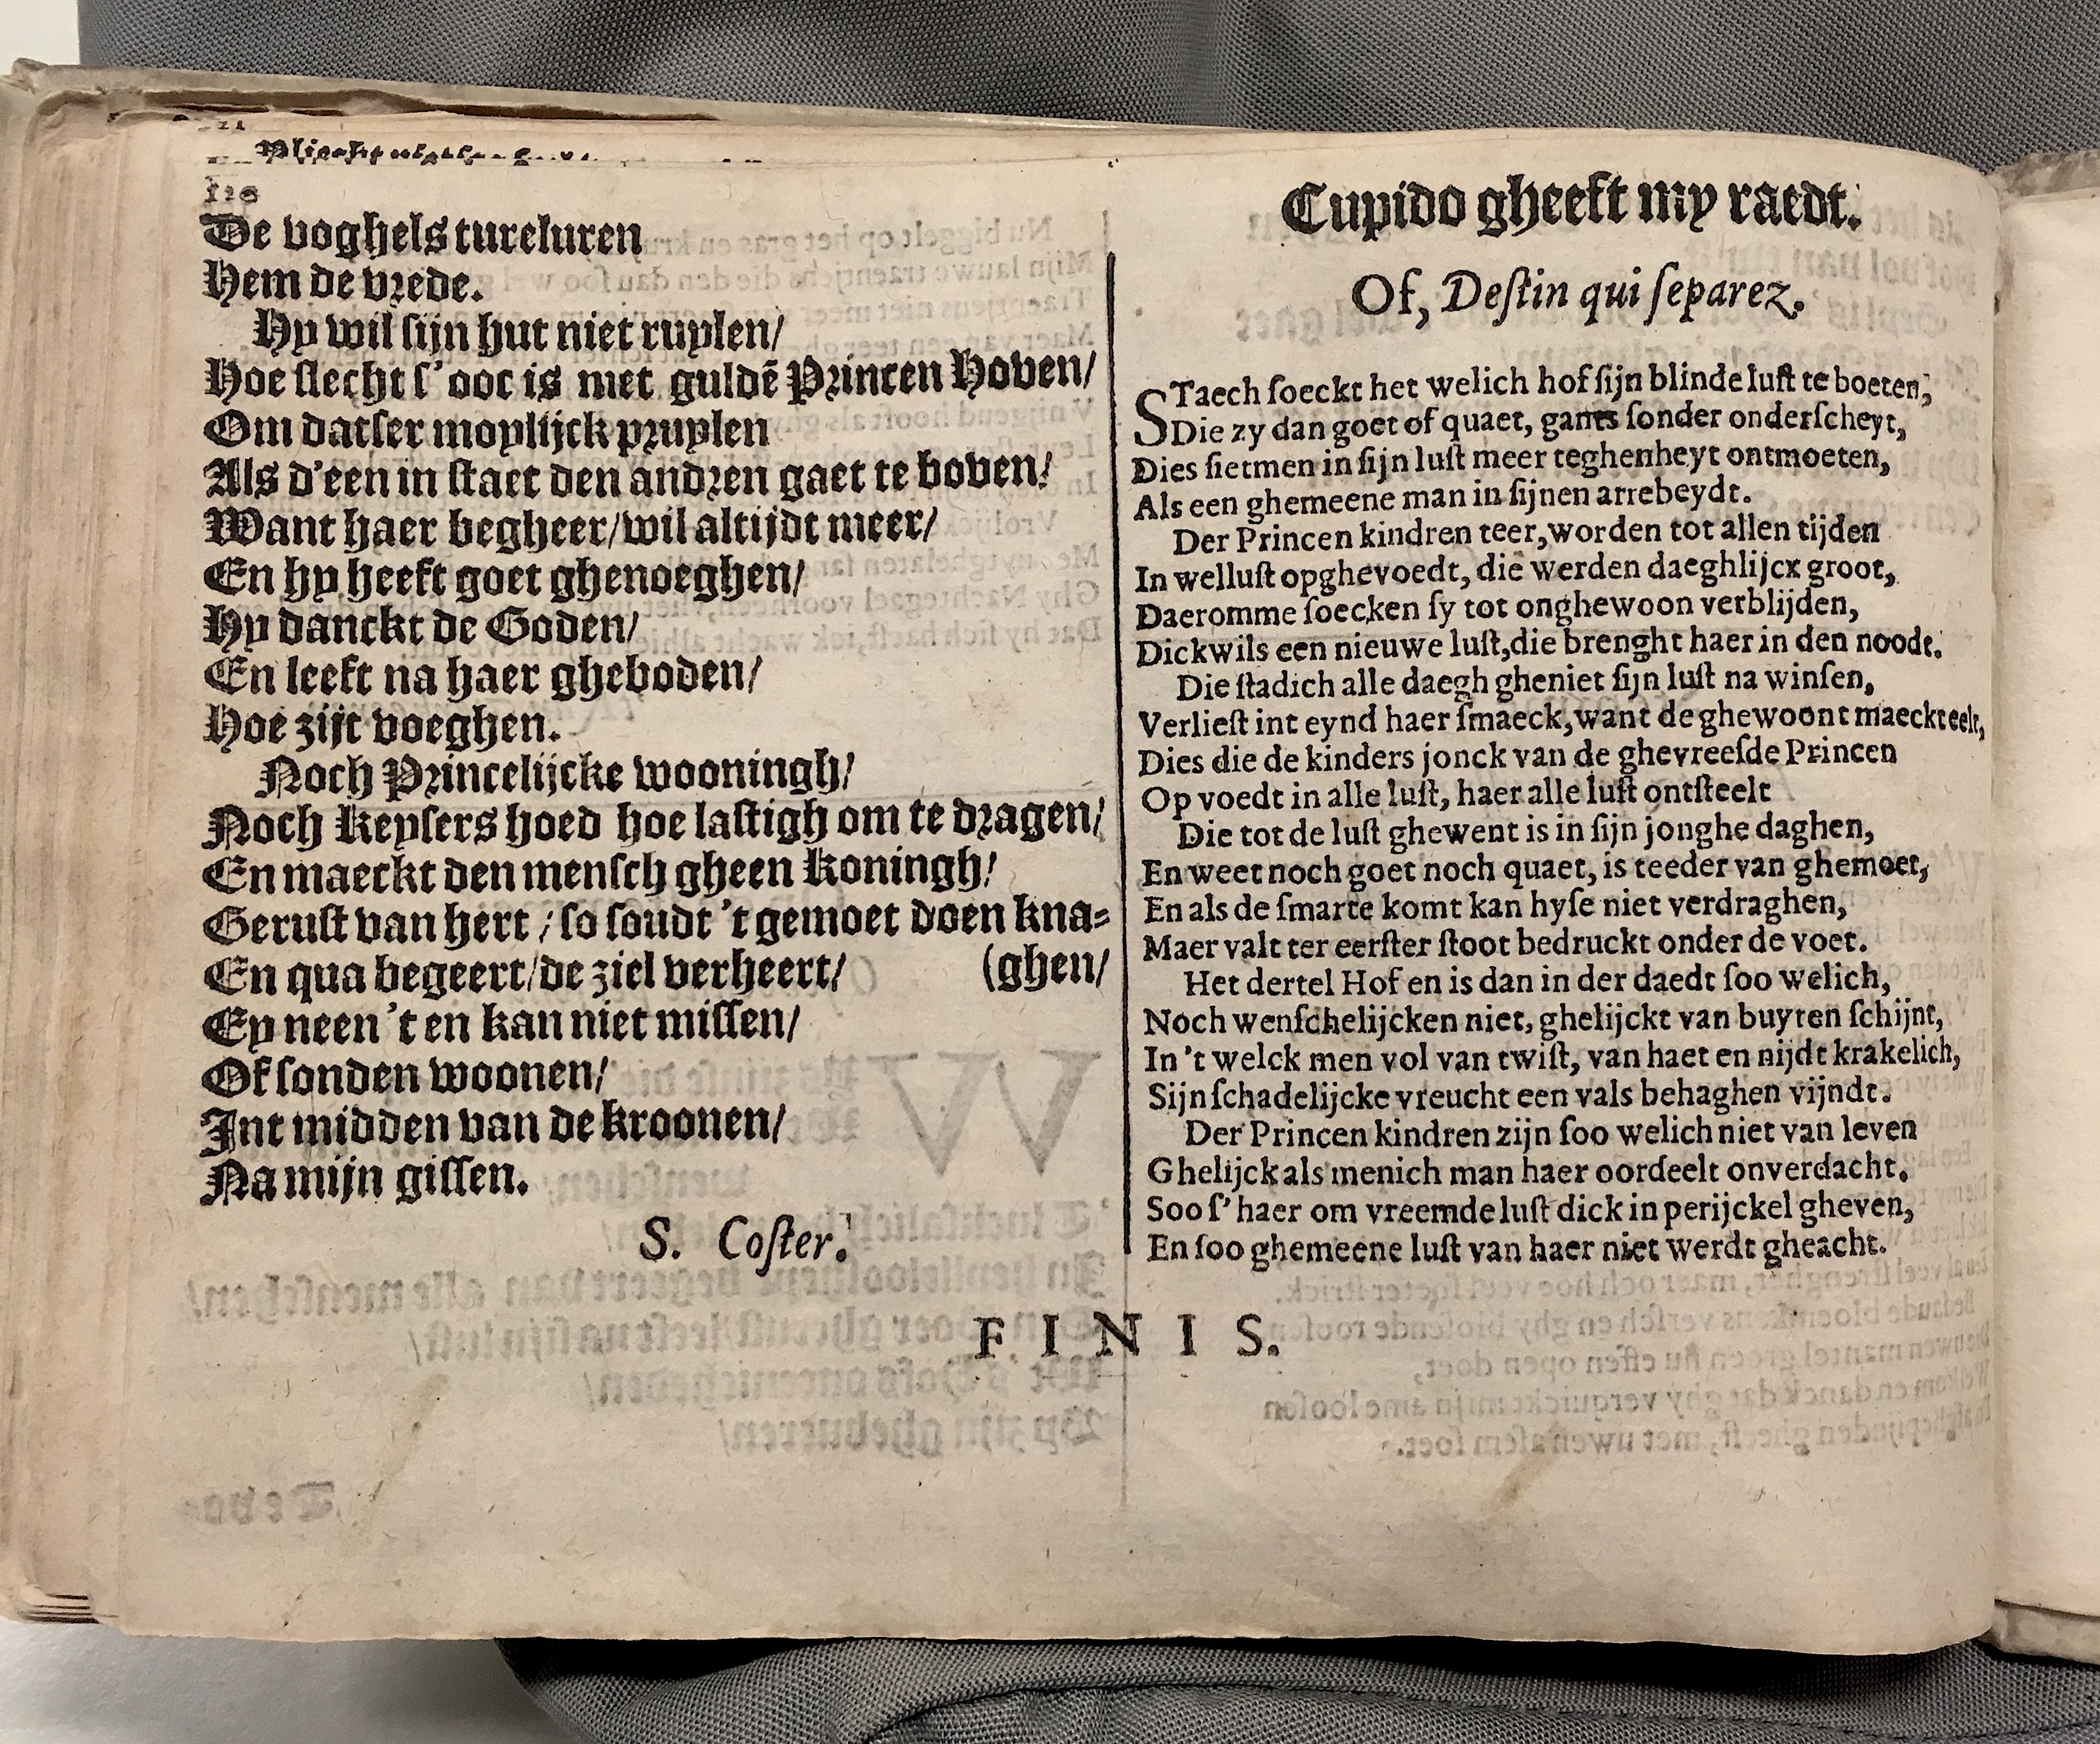 De voghels tureluren
Hem de vrede.
Hy wil sijn hut niet ruylen/
Hoe slecht s'ooc is met guldē Princen Hoven/
Om datser moylijck pruylen
Als d'een in staet den andren gaet te boven/
Want haer begheer/wil altijdt meer/
En hy heeft goet ghenoeghen/
Hy danckt de Goden/
En leeft na haer gheboden/
Hoe zijt voeghen.
Noch Princelijcke wooningh/
Noch Keysers hoed hoe lastigh om te dragen/
En maeckt den mensch gheen Koningh/
Gerust van hert / so soudt 't gemoet doen kna-
(ghen/
En qua begeert/de ziel verheert/
Ey neen 't en kan niet missen/
Of sonden woonen/
Int midden van de kroonen/
Na mijn gissen.
S. Coster.
Cupido gheeft my raedt.
Of, Destin qui separez.
STaech soeckt het welich hof sijn blinde lust te boeten,
Die zy dan goet of quaet, gants sonder onderscheyt,
Dies sietmen in sijn lust meer teghenheyt ontmoeten,
Als een ghemeene man in sijnen arrebeydt.
Der Princen kindren teer, worden tot allen tijden
In wellust opghevoedt, die werden daeghlijcx groot,
Daeromme soecken sy tot onghewoon verblijden,
Dickwils een nieuwe lust, die brenght haer in den noodt.
Die stadich alle daegh gheniet sijn lust na winsen,
Verliest int eynd haer smaeck, want de ghewoont maeckt eelt,
Dies die de kinders jonck van de ghevreesde Princen
Op voedt in alle lust, haer alle lust ontsteelt
Die tot de lust ghewent is in sijn jonghe daghen,
En weet noch goet noch quaet, is teeder van ghemoet,
En als de smarte komt kan hyse niet verdraghen,
Maer valt ter eerster stoot bedruckt onder de voet.
Het dertel Hof en is dan in der daedt soo welich,
Noch wenschelijcken niet, ghelijckt van buyten schijnt,
In 't welck men vol van twist, van haet en nijdt krakelich,
Sijn schadelijcke vreucht een vals behaghen vijndt.
Der Princen kindren zijn soo welich niet van leven
Ghelijck als menich man haer oordeelt onverdacht.
Soo s' haer om vreemde lust dick in perijckel gheven,
En soo ghemeene lust van haer niet werdt gheacht.
FINIS.